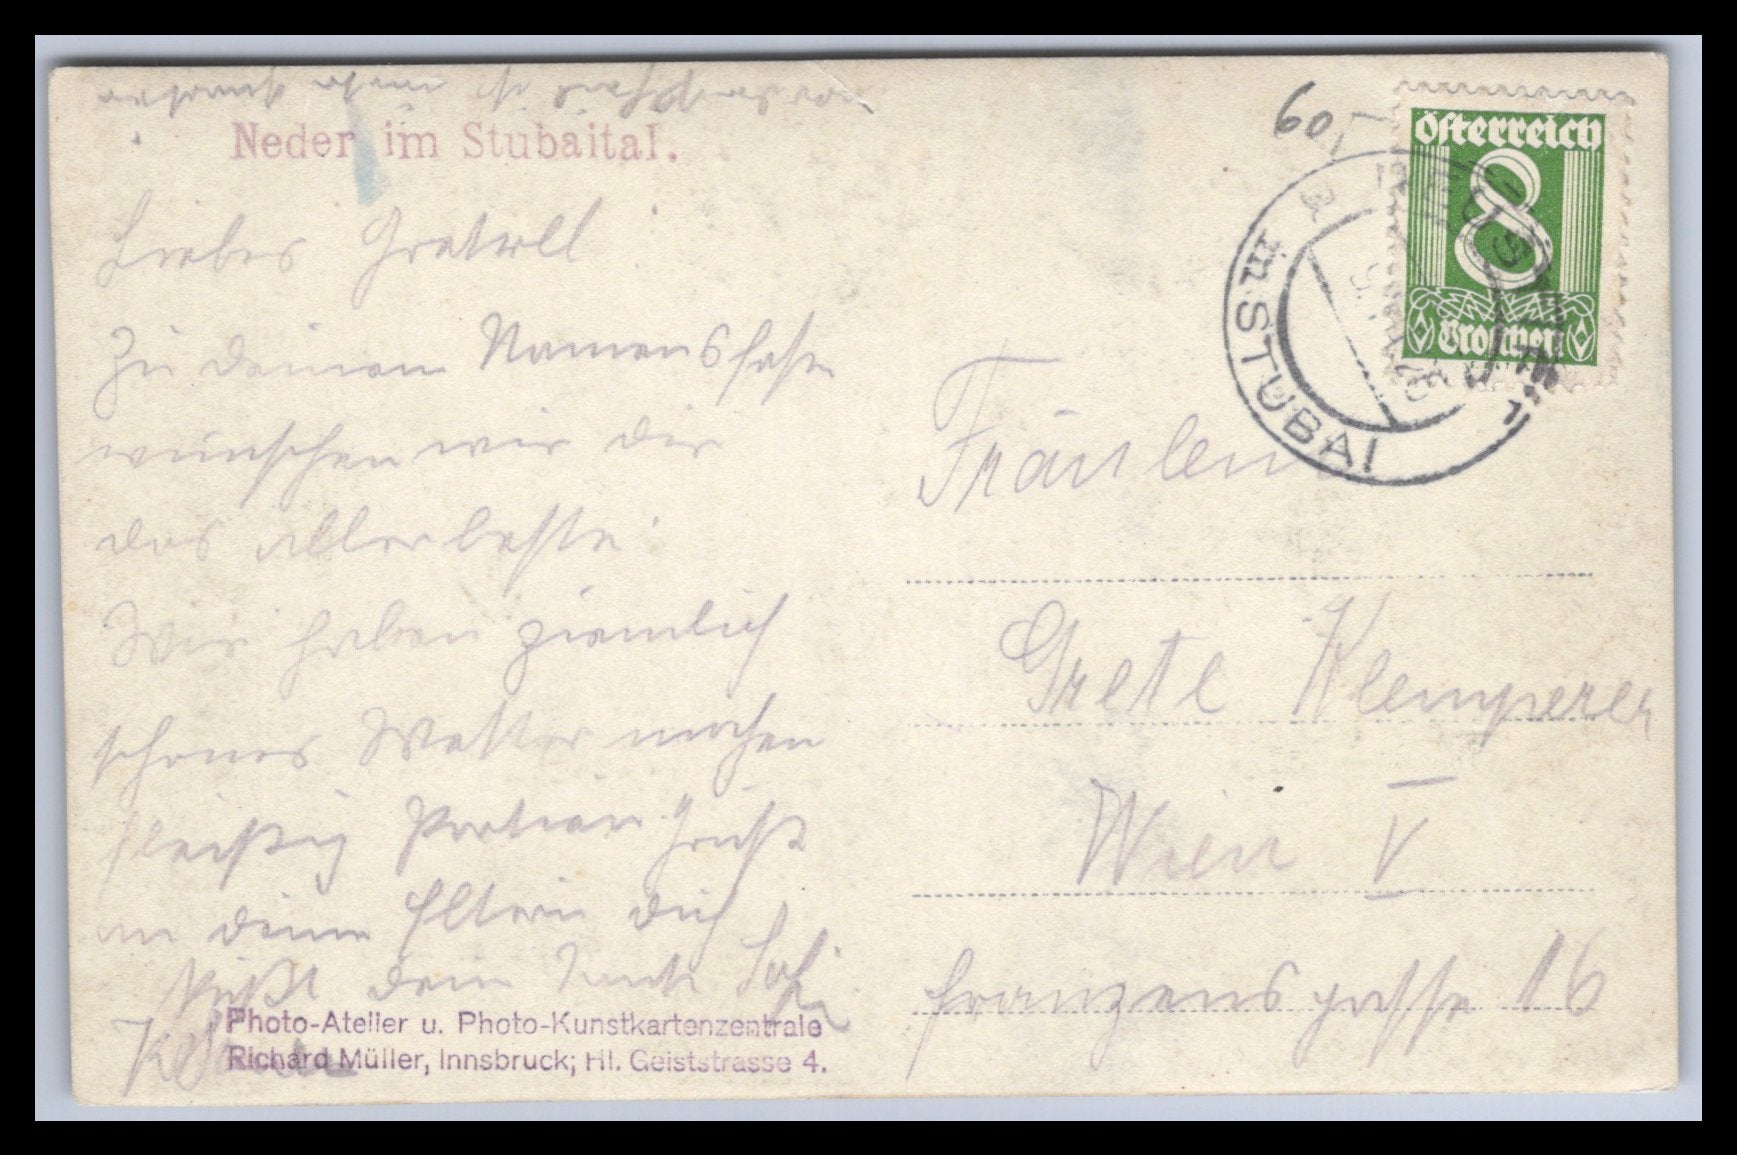 Neder im Stubaital.
Liebes Gretrll
Zu deinem Namensfeste
wünschen wir dir
das allerbeste
Wir haben ziemlich
schönes Wetter machen
fleißig Partien. Grüße
an deine Eltern dich
küßt dein Tante Sofi
Photo-Atelier u. Photo-Kunstkartenzentrale
Richard Müller, Innsbruck; Hl. Geiststrasse 4.
60,-
Österreich
8
Groschen
IM STUBAI
Fräulein
Grete Klemperer
Wien V
Franzensgasse 16